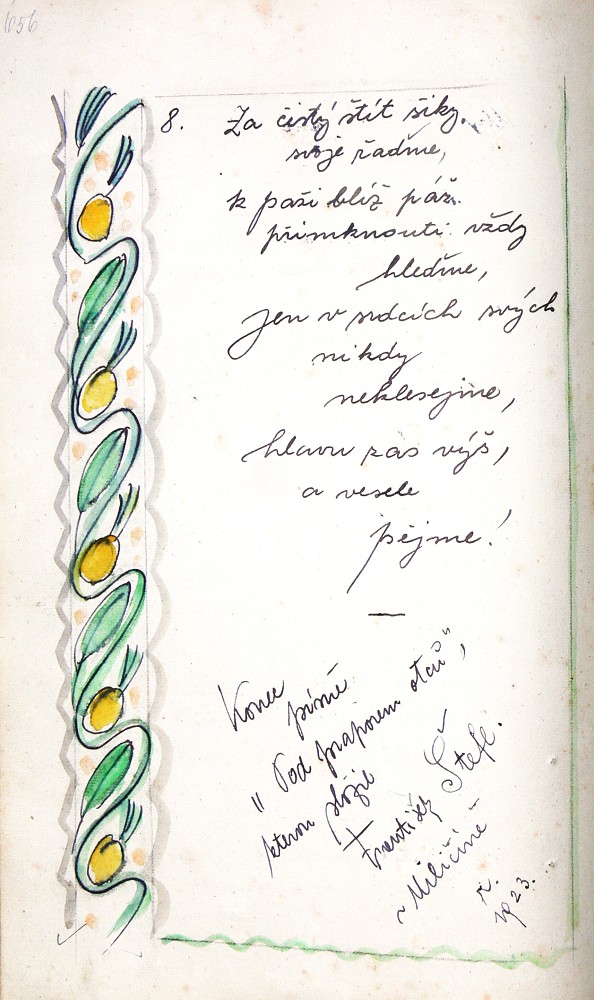 1056
8. Za čistý štít šiky
svoje řaďme,
k paži blíž páž
přimknouti vždy
hleďme,
jen v srdcích svých
nikdy
neklesejme,
hlavu zas výš,
a vesele
pějme!
—
Konec
písně
"Pod praporem otců",
kterou složil
František Štefl.
v Miličíně
r.
1923.